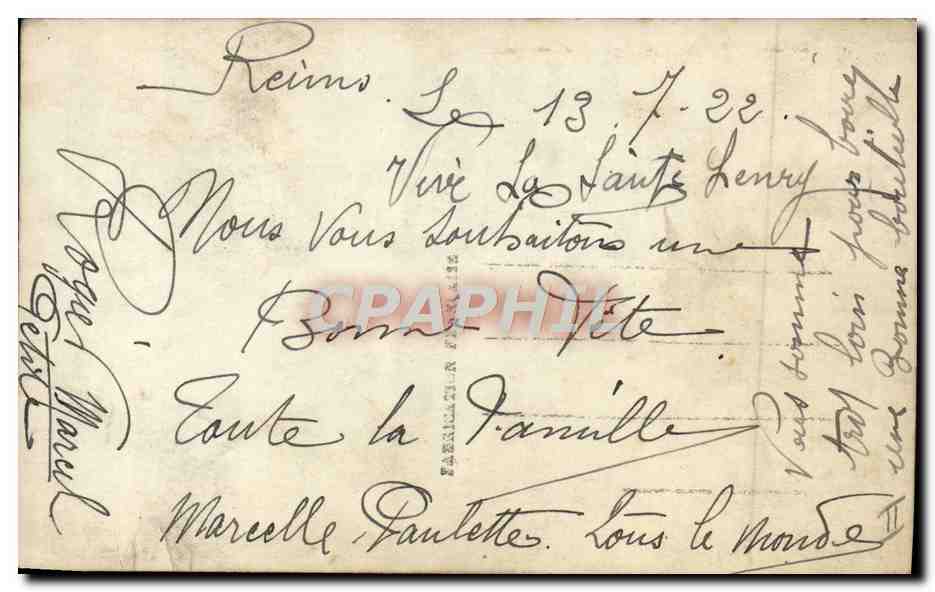 Reims.
Le 13.7-22.
Vive La Sainte Henry
Nous Vous souhaitons une
Bonne Fête.
Toute la Famille
Marcelle, Paulette. Tous le monde
Vous sommes
trop loin pour boire
une Bonne bouteille
Marcel
FABRICATION FRANÇAISE
CPAPHIL